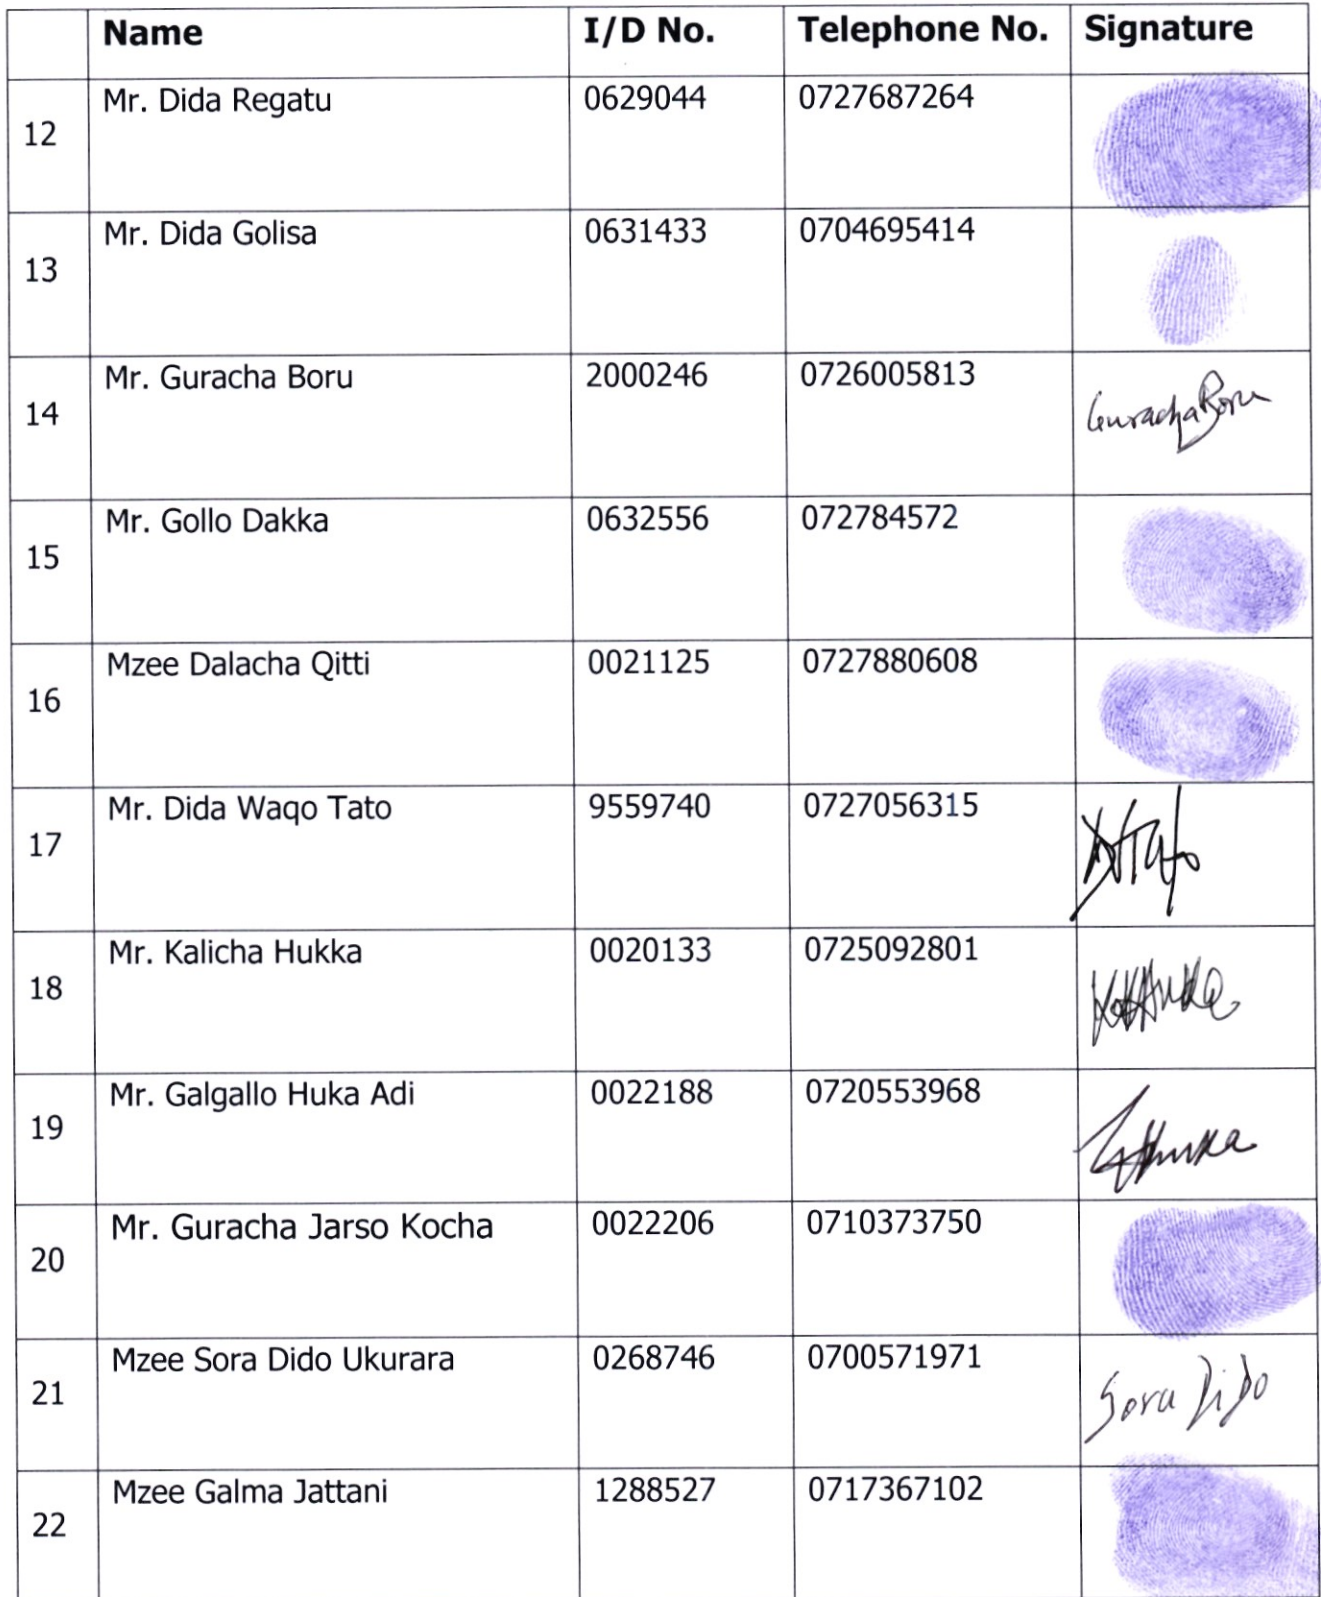 Name I/D No. Telephone No. Signature
12 Mr. Dida Regatu 0629044 0727687264
13 Mr. Dida Golisa 0631433 0704695414
14 Mr. Guracha Boru 2000246 0726005813 Guracha Boru
15 Mr. Gollo Dakka 0632556 072784572
16 Mzee Dalacha Qitti 0021125 0727880608
17 Mr. Dida Waqo Tato 9559740 0727056315
18 Mr. Kalicha Hukka 0020133 0725092801
19 Mr. Galgallo Huka Adi 0022188 0720553968
20 Mr. Guracha Jarso Kocha 0022206 0710373750
21 Mzee Sora Dido Ukurara 0268746 0700571971 Sora Dido
22 Mzee Galma Jattani 1288527 0717367102